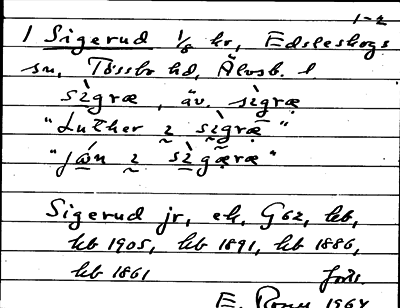 1-2
1 Sigerud 1/8 hr, Edsleskogs
sn, Tössbo hd, Älvsb. l
sìgræ, äv. sìgræ
"Luther 2 sìgræ"
"Ján 2 sìgæræ"
Sigerud jr, ek, G62, hb,
hb 1905, hb 1891, hb 1886,
hb 1861 forts.
E. 1964